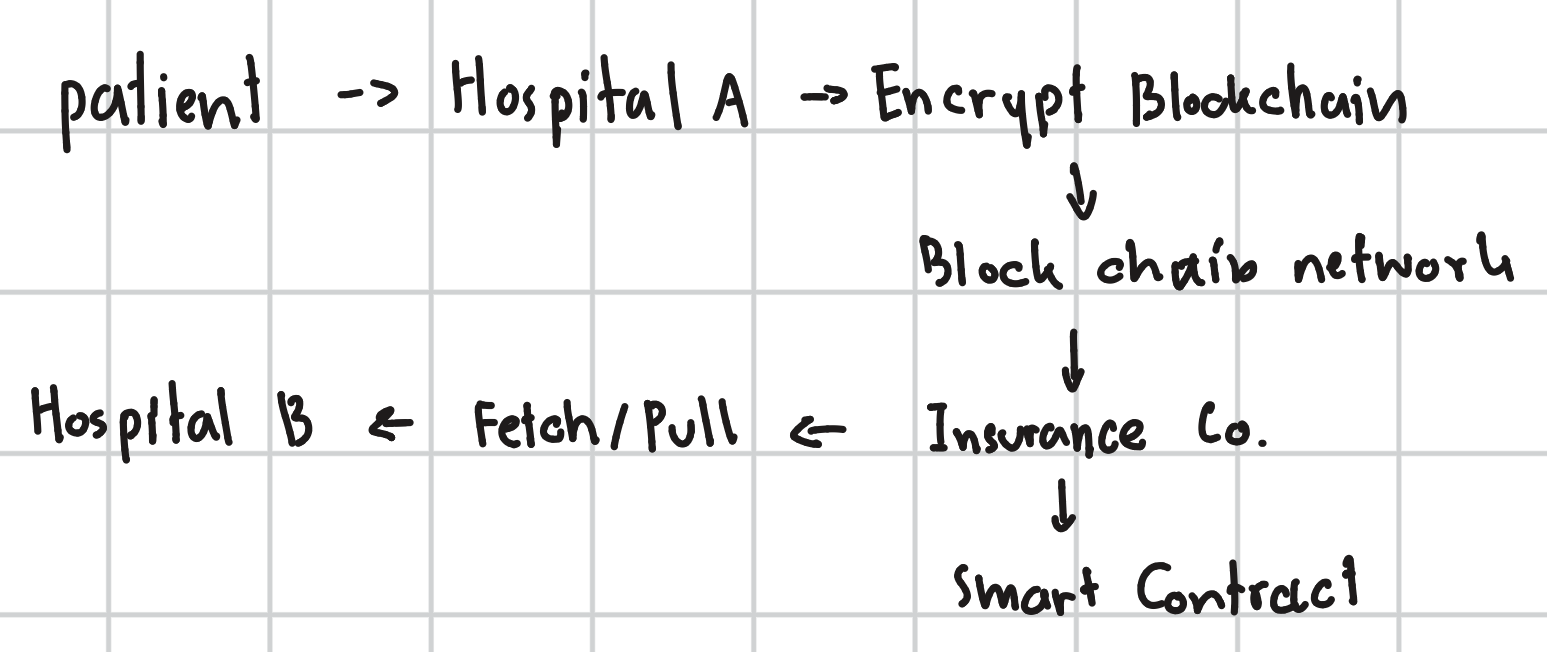 patient -> Hospital A -> Encrypt Blockchain
↓
Block chain network
↓
Hospital B ← Fetch/Pull ← Insurance Co.
↓
Smart Contract